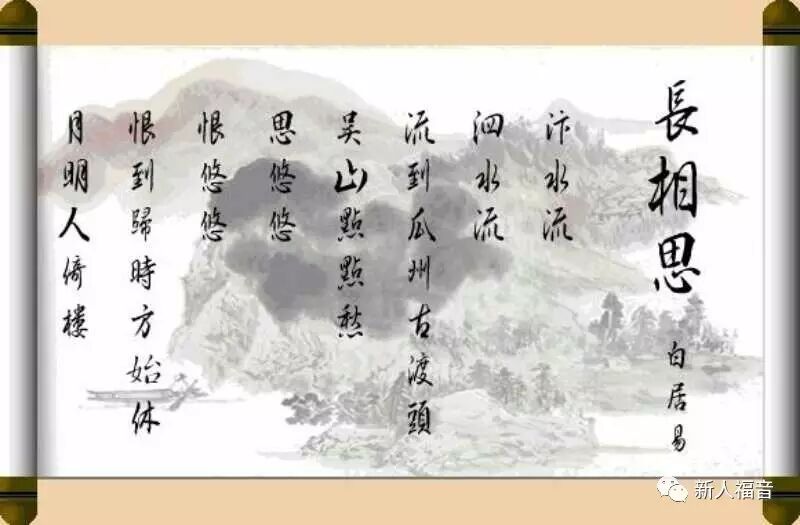 長相思
白居易
汴水流
泗水流
流到瓜州古渡頭
吴山點點愁
思悠悠
恨悠悠
恨到歸時方始休
月明人倚楼
新人福音